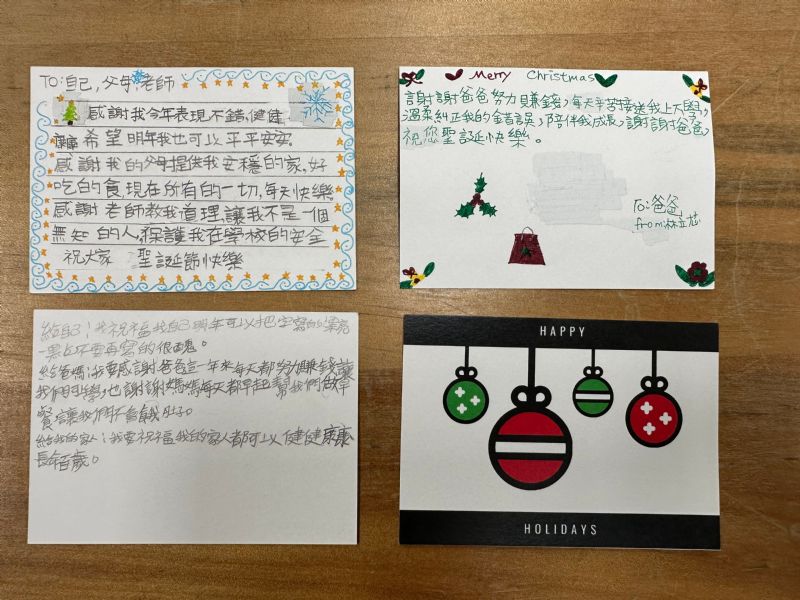 TO:自己,父母,老師
感謝我今年表現不錯,健健
康康希望明年我也可以平平安安。
感謝我的父母提供我安穩的家,好
吃的食,現在所有的一切,每天快樂
感謝老師教我道理,讓我不是一個
無知的人,保護我在學校的安全
祝大家 聖誕節快樂
Merry Christmas
謝謝爸爸努力賺錢,每天辛苦接送我上下學,
溫柔糾正我的錯誤,陪伴我成長,謝謝爸爸,
祝您聖誕快樂。
To:爸爸
from:林立芯
給自己:我祝福我自己明年可以把字寫的漂亮
一點不要再寫的很醜。
給爸媽:我要感謝爸爸這一年來每天都努力賺錢讓
我們可以學,也謝謝媽媽每天都早起幫我們做早
餐讓我們不會餓肚子。
給我的家人:我要祝福我的家人都可以健健康康
長命百歲。
HAPPY
HOLIDAYS